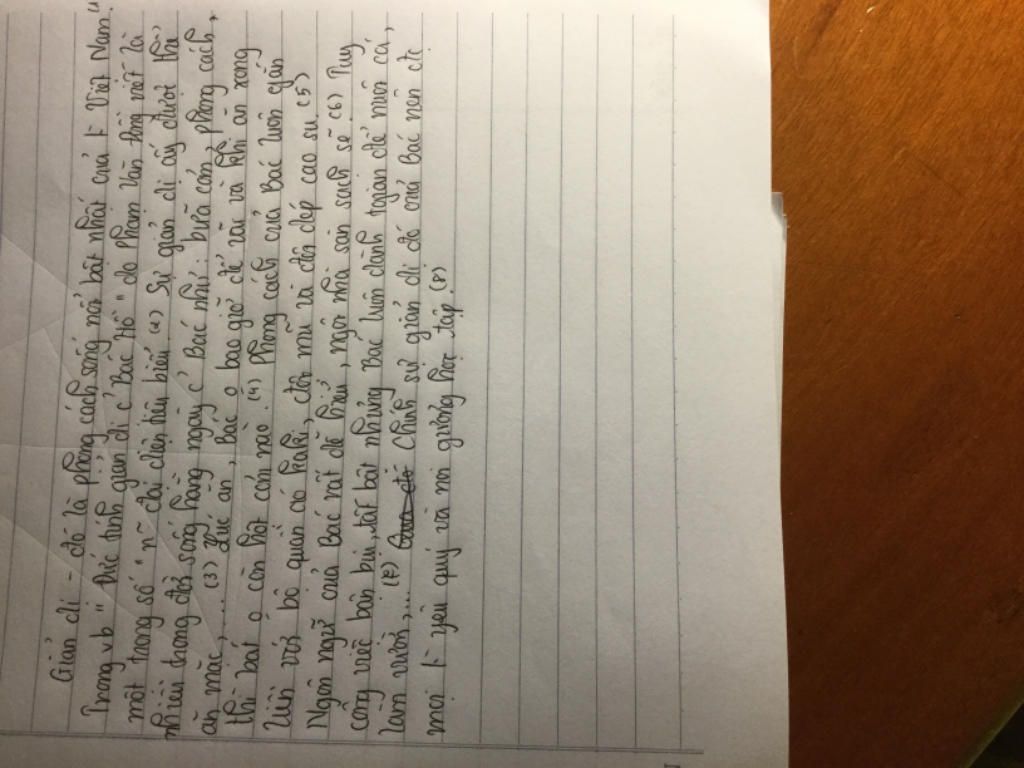 Giản dị - đó là phong cách sống nổi bật nhất của t Việt Nam.
Trong vb " Đức tính giản dị c' Bác Hồ " do Phạm Văn Đồng viết là
một trong số " n~ đại diện tiêu biểu. (2) Sự giản dị ấy được thể
hiện trong đời sống hằng ngày c' Bác như: bữa cơm, phong cách,
ăn mặc,... (3) Lúc ăn, Bác o bao giờ để rơi vãi và khi ăn xong
thì bát o còn hạt cơm nào. (4) Phong cách của Bác luôn gắn
liền với bộ quần áo kaki, đôi mũ và đôi dép cao su. (5)
Ngôn ngữ của Bác rất dễ hiểu, ngôi nhà sàn sạch sẽ. (6) Tuy
công việc bận bịu, tất bật nhưng Bác luôn dành tgian để nuôi cá,
làm vườn,... (7) Chính sự giản dị đó của Bác nên đc
mọi t yêu quý và noi gương học tập. (8)